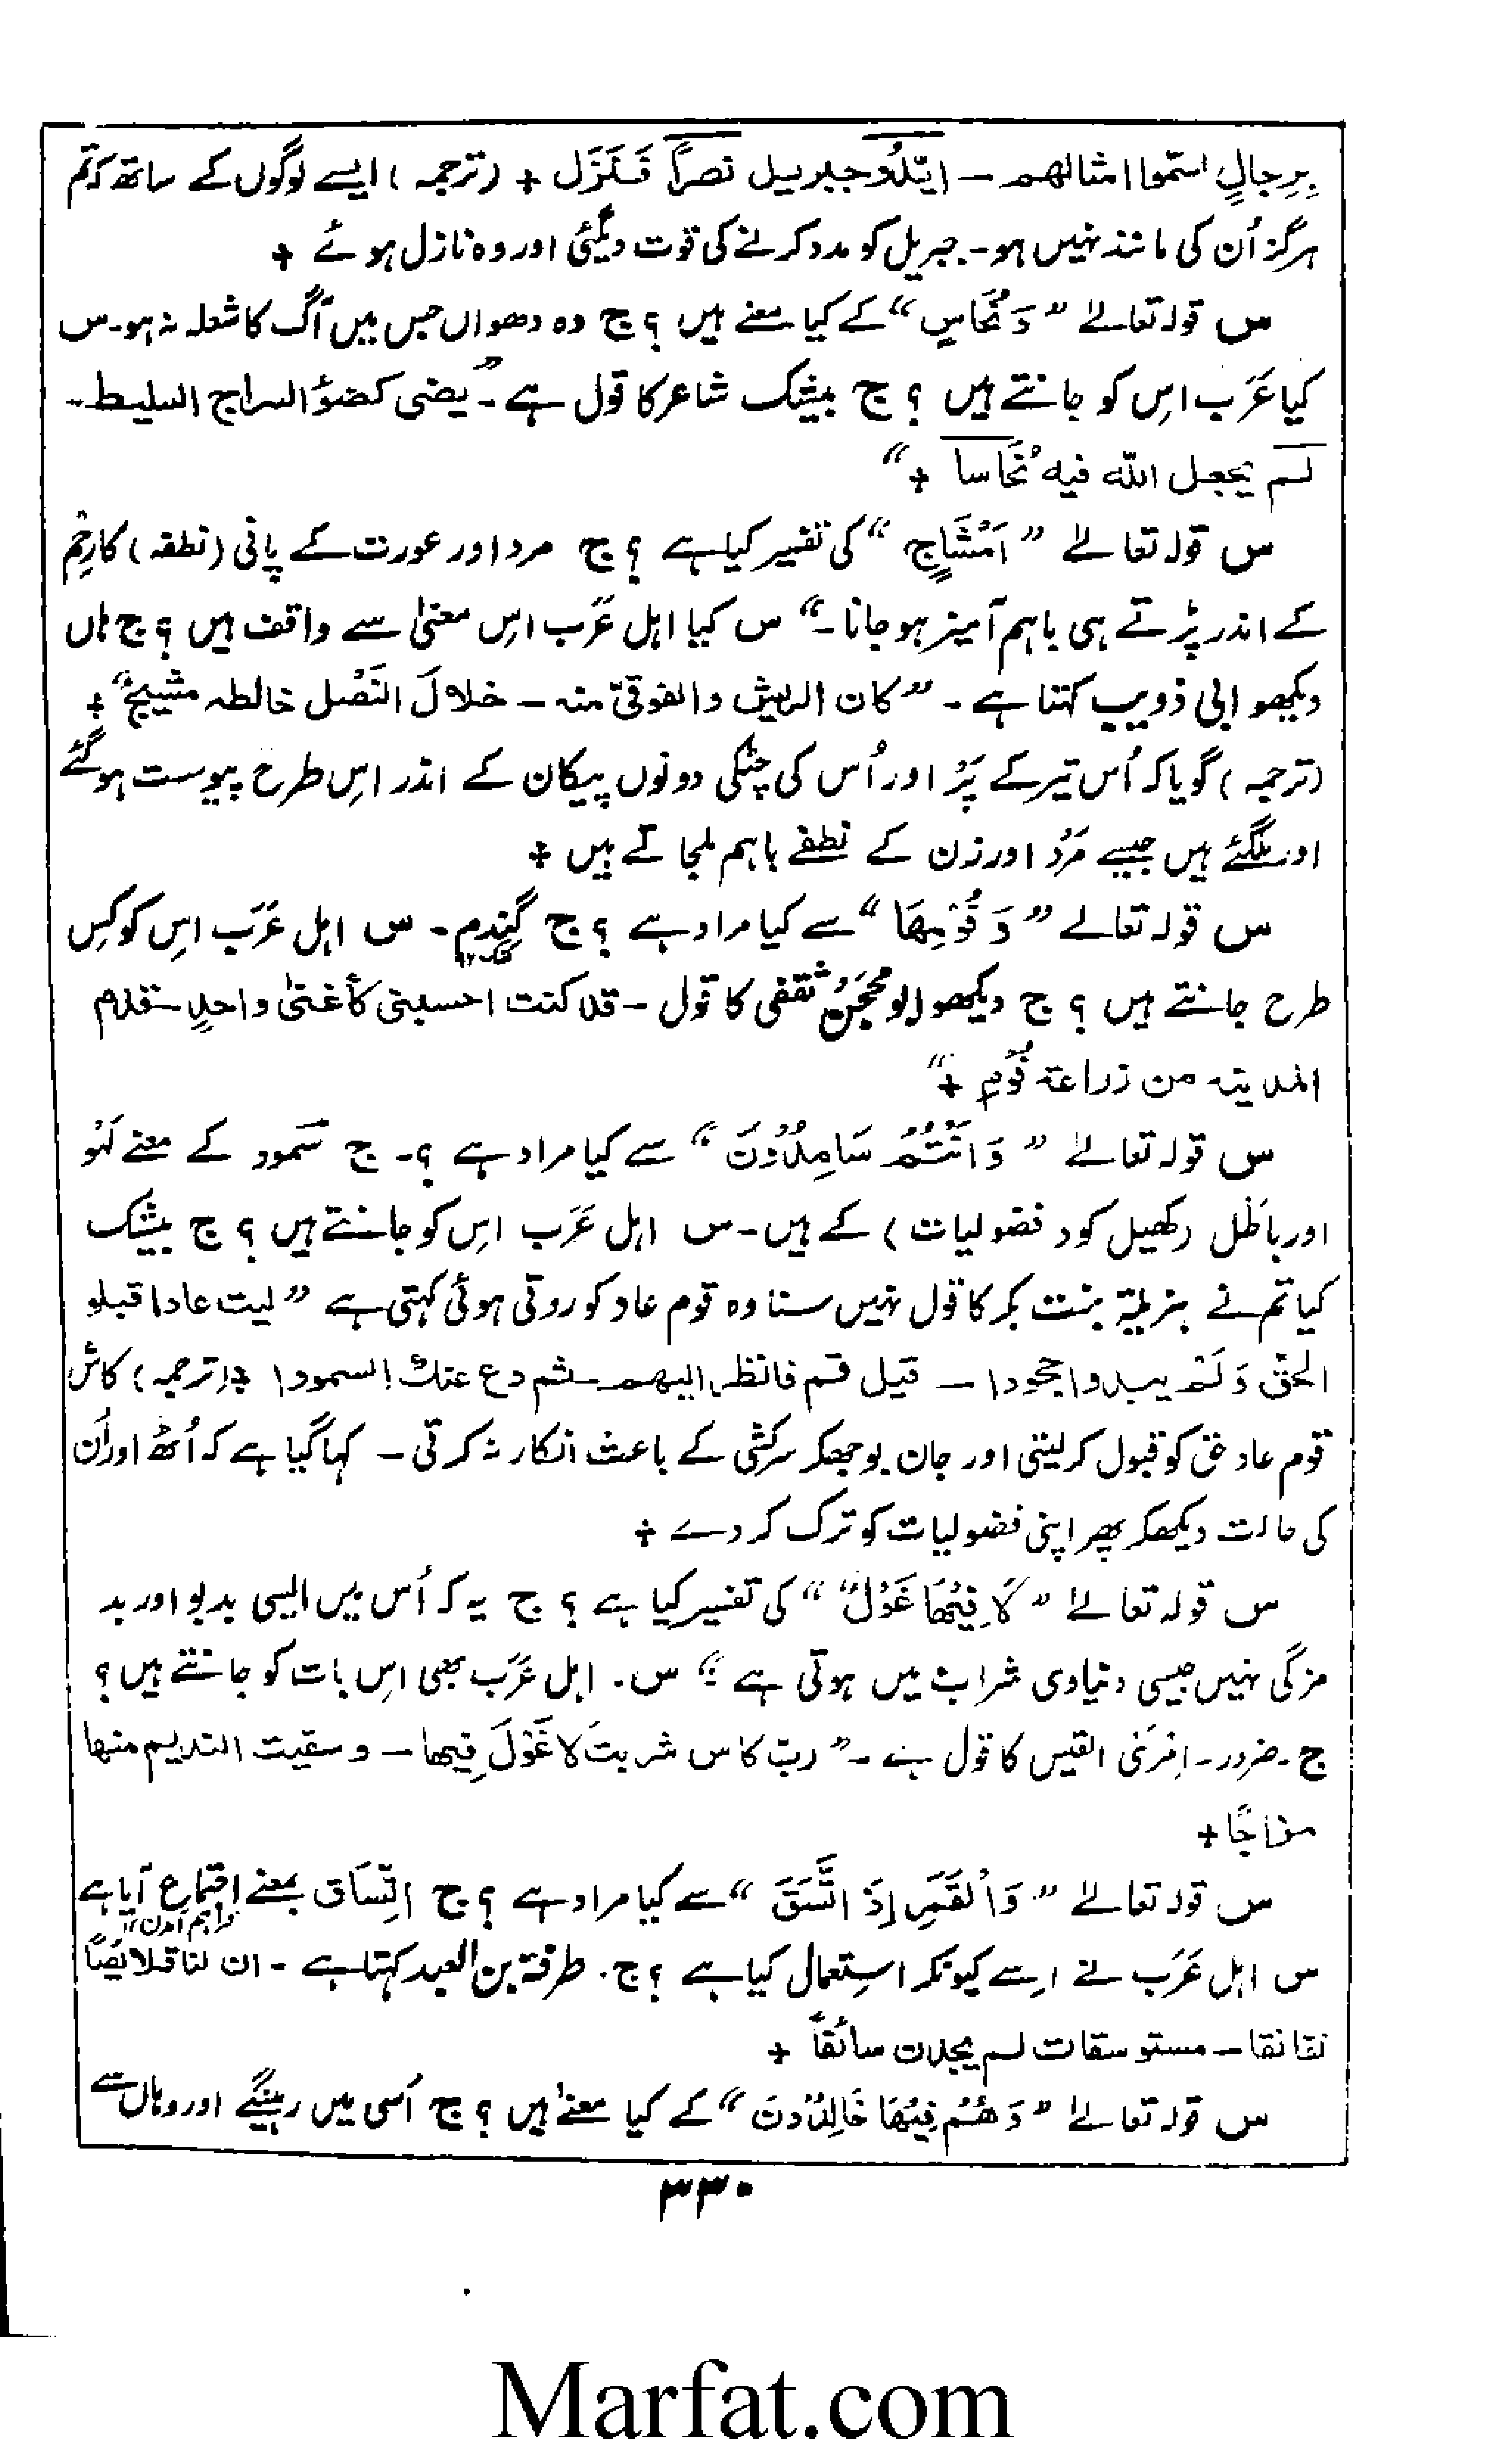 بِرِجالٍ لستموا امثالهم ــ ايّدُو جبرييل نصراً فَنَزَل + (ترجمہ) ایسے لوگوں کے ساتھ کہ تم
ہرگز اُن کی مانند نہیں ہو۔ جبریل کو مدد کرنے کی قوت دیگئی اور وہ نازل ہوئے +
س قولہ تعالےٰ ”وَنُحَاسٍ“ کے کیا معنے ہیں ؟ ج وہ دھواں جس میں آگ کا شعلہ نہ ہو۔ س
کیا عَرَب اس کو جانتے ہیں ؟ ج بیشک شاعر کا قول ہے۔ ”یضئی کضوٗ السراج السلیط۔
لم یجعل اللّٰہ فیہ نُحَاسا +“
س قولہ تعالےٰ ”اَمْشَاجٍ“ کی تفسیر کیا ہے ؟ ج مرد اور عورت کے پانی (نطفہ) کا رِحم
کے اندر پڑتے ہی باہم آمیز ہوجانا۔“ س کیا اہل عَرَب اس معنیٰ سے واقف ہیں ؟ ج ہاں
دیکھو ابی ذویب کہتا ہے۔ ”کان الریش والفوقیّ منہ ــ خلالَ النَصْل خالطہ مشیج“ +
(ترجمہ) گویا کہ اُس تیر کے پَر اور اُس کی چٹکی دونوں پیکان کے اندر اس طرح پیوست ہوگئے
اور ملگئے ہیں جیسے مَرْد اور زن کے نطفے باہم ملجاتے ہیں +
س قولہ تعالےٰ ”وَفُوْمِهَا“ سے کیا مراد ہے ؟ ج گیندم۔ س اہل عَرَب اس کو کس
طرح جانتے ہیں ؟ ج دیکھو ابو محجَنْ ثقفی کا قول ــ قد کنت احسبنی کأغنیٰ واحدٍ ــ قدم
المدینہ من زراعۃ فُومٍ +“
س قولہ تعالےٰ ”وَاَنْتُمْ سَامِدُوْنَ“ سے کیا مراد ہے ؟۔ ج سمود کے معنے لَہْو
اور باطل (کھیل کود فضولیات) کے ہیں۔ س اہل عَرَب اس کو جانتے ہیں ؟ ج بیشک
کیا تم نے ہزیلۃ بنت بکر کا قول نہیں سنا وہ قوم عاد کو روتی ہوئی کہتی ہے ”لیت عادا قبلو
الحَقّ وَلَمْ یبدوا جحودا ــ قیل قم فانظر الیھم ــ ثم دع عنك السمودا + (ترجمہ) کاش
قوم عاد حق کو قبول کرلیتی اور جان بوجھکر سرکشی کے باعث انکار نہ کرتی ــ کہا گیا ہے کہ اُٹھ اور اُن
کی حالت دیکھکر پھر اپنی فضولیات کو ترک کردے +
س قولہ تعالےٰ ”لَا فِيْهَا غَوْلٌ“ کی تفسیر کیا ہے ؟ ج یہ کہ اُس میں ایسی بدبو اور بد
مزگی نہیں جیسی دنیاوی شراب میں ہوتی ہے ؛“ س۔ اہل عَرَب بھی اس بات کو جانتے ہیں ؟
ج۔ ضرور۔ امرئی القیس کا قول ہے ــ ”ربّ کاس شربتَ لا غَوْلَ فِیھا ــ وسقیت الندیم منھا
مزاجًا +
س قولہ تعالےٰ ”وَالْقَمَرِ اِذَ اتَّسَقَ“ سے کیا مراد ہے ؟ ج اتِّسَاق بمعنے اجتماع آیا ہے
فراہم آمدن ۱۲
س اہل عَرَب نے اسے کیونکر استعمال کیا ہے ؟ ج۔ طرفۃ بن العبد کہتا ہے ۔ ان لنا قلایصًا
نقانقا ــ مستوسقات لم یجدن سائقاً +
س قولہ تعالےٰ ”وَهُمْ فِيْهَا خَالِدُوْنَ“ کے کیا معنےٰ ہیں ؟ ج اُسی میں رہینگے اور وہاں سے
۳۳۰
Marfat.com